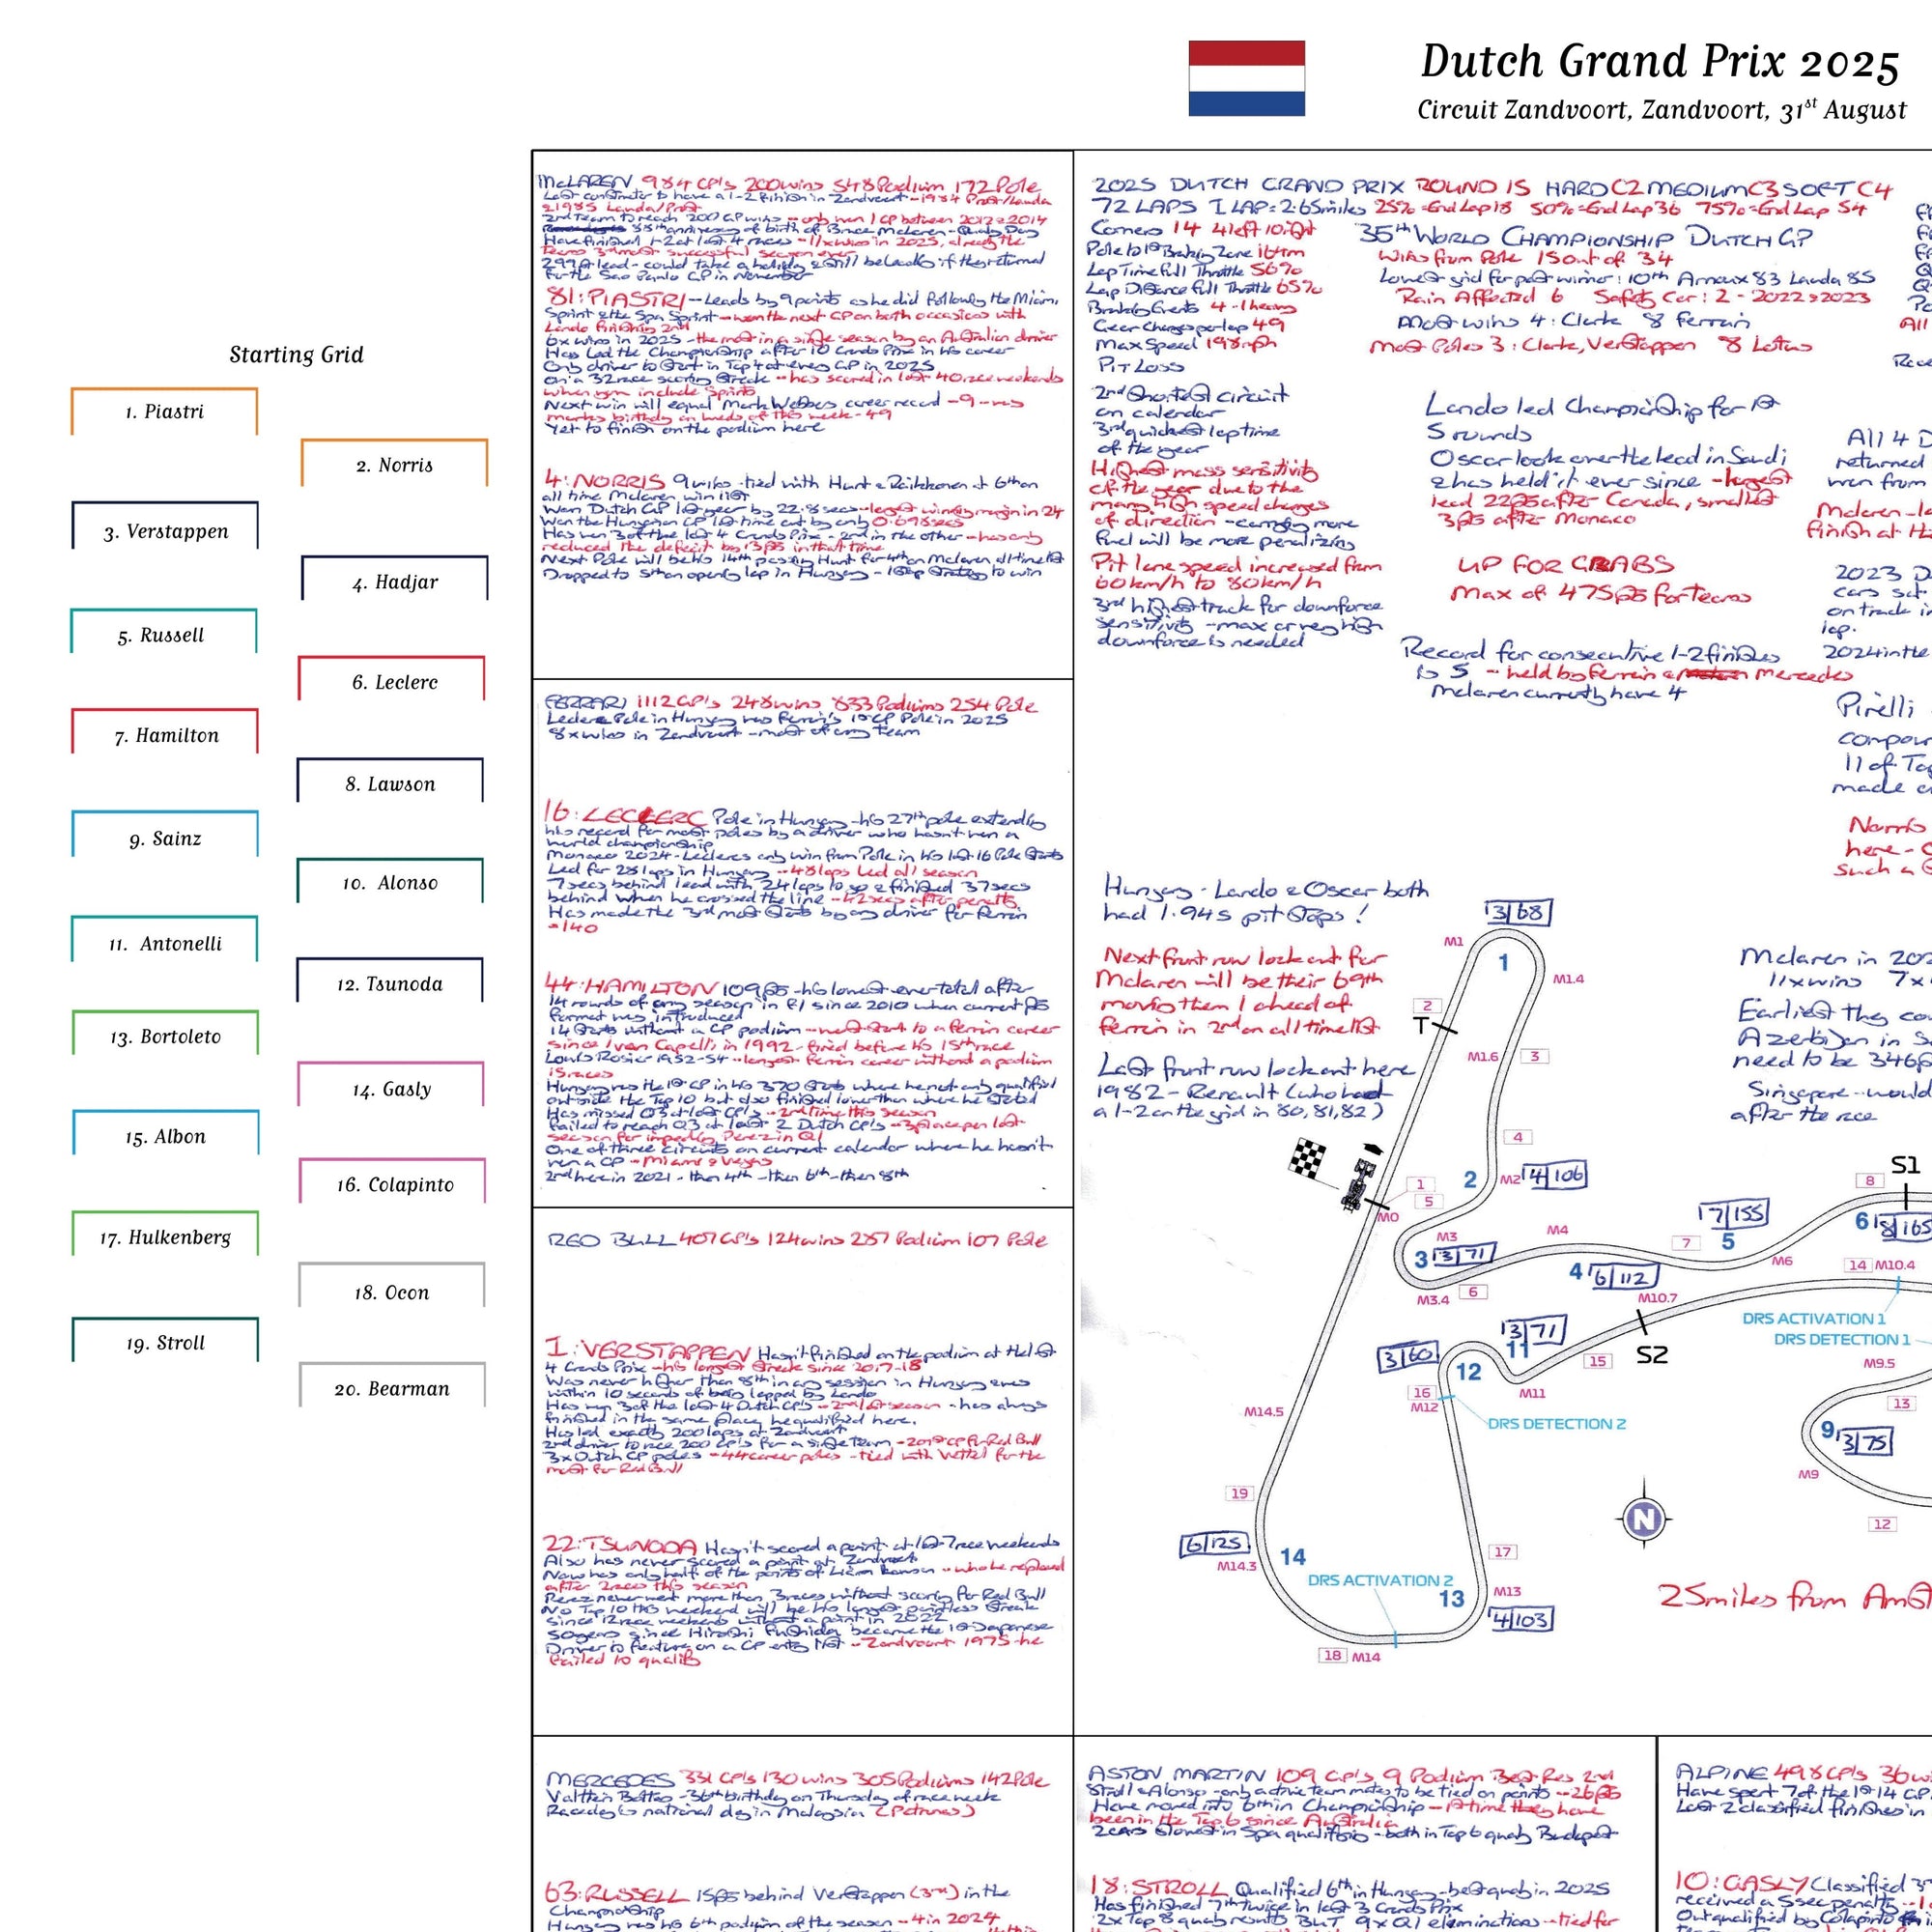 Dutch Grand Prix 2025
Circuit Zandvoort, Zandvoort, 31st August
Starting Grid
1. Piastri
2. Norris
3. Verstappen
4. Hadjar
5. Russell
6. Leclerc
7. Hamilton
8. Lawson
9. Sainz
10. Alonso
11. Antonelli
12. Tsunoda
13. Bortoleto
14. Gasly
15. Albon
16. Colapinto
17. Hulkenberg
18. Ocon
19. Stroll
20. Bearman
McLAREN 984 GP's 200wins 548Podium 172Pole
Last constructor to have a 1-2 finish in Zandvoort - 1984 Prost/Lauda
& 1985 Lauda/Prost
2nd team to reach 200 GP wins - only won 1 GP between 2012 & 2014
88th anniversary of birth of Bruce McLaren - Quali Day
Have finished 1-2 at last 4 races - 11xwins in 2025, already the
teams 3rd most successful season ever
299pt lead - could take a holiday & still be leading if they returned
for the Sao Paulo GP in November
81: PIASTRI - Leads by 9 points as he did following the Miami
Sprint & the Spa Sprint - won the next GP on both occasions with
Lando finishing 2nd
6x wins in 2025 - the most in a single season by an Australian driver
Has led the Championship after 10 Grands Prix in his career
Only driver to start in Top 4 at every GP in 2025
On a 32 race scoring streak - has scored in last 40 race weekends
when you include Sprints
Next win will equal Mark Webbers career record - 9 - who
marks birthday on weds of this week - 49
Yet to finish on the podium here
4: NORRIS 9 wins - tied with Hunt & Raikkonen at 6th on
all time McLaren win list
Won Dutch GP last year by 22.8 secs - largest winning margin in 24
Won the Hungarian GP last time out by only 0.698secs
Has won 3 of the last 4 Grands Prix - 2nd in the other - has only
reduced the deficit by 13pts in that time
Next Pole will be his 14th passing Hunt for 4th on McLaren all time list
Dropped to 5th on opening lap in Hungary - 1 stop strategy to win
FERRARI 1112 GP's 248wins 833 Podiums 254 Pole
Leclercs Pole in Hungary was Ferrari's 1st GP Pole in 2025
8xwins in Zandvoort - most of any team
16: LECLERC Pole in Hungary - his 27th pole extending
his record for most poles by a driver who hasn't won a
world championship
Monaco 2024 - Leclercs only win from Pole in his last 16 Pole Starts
Led for 28 laps in Hungary - 48 laps led all season
7secs behind lead with 24 laps to go & finished 37secs
behind when he crossed the line - 42secs after penalty
Has made the 3rd most Starts by any driver for Ferrari
- 140
44: HAMILTON 109pts - his lowest ever total after
14 rounds of any season in F1 since 2010 when current pts
format was introduced
14 Starts without a GP podium - worst start to a Ferrari career
since Ivan Capelli in 1992 - fired before his 15th race
Louis Rosier 1952-54 - longest Ferrari career without a podium
15 races
Hungary was the 1st GP in his 370 Starts where he not only qualified
outside the Top 10 but also finished lower than where he started
Has missed Q3 at last GP's - 2nd time this season
Failed to reach Q3 at last 2 Dutch GP's - 3 place pen last
season for impeding Perez in Q1
One of three circuits on current calendar where he hasn't
won a GP - Miami & Vegas
2nd here in 2021 - then 4th - then 6th - then 8th
RED BULL 407 GP's 124wins 287 Podium 107 Pole
1: VERSTAPPEN Hasn't finished on the podium at the last
4 Grands Prix - his longest streak since 2017-18
Was never higher than 8th in any session in Hungary & was
within 10 seconds of being lapped by Lando
Has won 3 of the last 4 Dutch GP's - 2nd last season - has always
finished in the same place he qualified here.
Has led exactly 200 laps at Zandvoort
2nd driver to race 200 GP's for a single team - 201st GP for Red Bull
3x Dutch GP poles - 44 career poles - tied with Vettel for the
most for Red Bull
22: TSUNODA Hasn't scored a point at last 7 race weekends
Also has never scored a point at Zandvoort
Now has only half of the points of Liam Lawson - who he replaced
after 2 races this season
Perez never went more than 3 races without scoring for Red Bull
No Top 10 this weekend will be his longest pointless Streak
since 12 race weekends without a point in 2022
50 years since Hiroshi Fushida became the 1st Japanese
Driver to feature on a GP entry list - Zandvoort 1975 - he
failed to qualify
MERCEDES 331 GP's 130 wins 305 Podiums 142 Pole
Valtteri Bottas - 36th birthday on Thursday of race week
Raceday is national day in Malaysia (Petronas)
63: RUSSELL 15pts behind Verstappen (3rd) in the
Championship
Hungary was his 6th podium of the season - 4 in 2024
2025 DUTCH GRAND PRIX ROUND 15 HARD C2 MEDIUM C3 SOFT C4
72 LAPS 1 LAP = 2.65miles 25% = End Lap 18 50% = End Lap 36 75% = End Lap 54
Corners 14 4 left 10 right
Pole to 1st Braking Zone 164m
Lap Time Full Throttle 56%
Lap Distance Full Throttle 65%
Braking Events 4 - 1 heavy
Gear Changes per lap 49
Max Speed 198mph
Pit Loss
35th WORLD CHAMPIONSHIP DUTCH GP
Wins from Pole 15 out of 34
Lowest grid for past winner: 10th Arnoux 83 Lauda 85
Rain Affected 6 Safety Car: 2 - 2022 & 2023
Most wins 4: Clark 8 Ferrari
Most Poles 3: Clark, Verstappen 8 Lotus
2nd Shortest circuit
on calendar
3rd quickest lap time
of the year
Highest mass sensitivity
of the year due to the
many high speed changes
of direction - carrying more
fuel will be more penalising
Pit lane speed increased from
60km/h to 80km/h
3rd highest track for downforce
sensitivity - max or very high
downforce is needed
Lando led Championship for 1st
5 rounds
Oscar took over the lead in Saudi
& has held it ever since - largest
lead 22pts after Canada, smallest
3pts after Monaco
UP FOR GRABS
Max of 475pts for teams
Record for consecutive 1-2 finishes
is 5 - held by Ferrari & Mercedes
McLaren currently have 4
All
Rece
All 4 D
returned
won from
McLaren - la
finish at H
2023 D
cars set
on track i
lap.
2024 in the
Pirelli
compoun
11 of To
made
Norris
here -
such a
Hungary - Lando & Oscar both
had 1.94s pit stops!
Next front row lockout for
McLaren will be their 69th
moving them 1 ahead of
Ferrari in 2nd on all time list
Last front row lockout here
1982 - Renault (who had
a 1-2 on the grid in '80, 81, 82)
McLaren in 202
11xwins 7x
Earliest they co
Azerbijan in S
need to be 346p
Singapore - would
after the race
3/68
M1
1
M1.4
2
T
M1.6
3
4
2
M2
4/106
1
5
M0
M3
3
3/71
M3.4
6
M4
4
6/112
7
5
7/155
M6
8
S1
6
8/165
14
M10.4
M10.7
DRS ACTIVATION 1
DRS DETECTION 1
M9.5
S2
3/71
11
15
3/60
12
M11
16
M12
DRS DETECTION 2
13
9
3/75
M9
12
N
M14.5
19
6/125
M14.3
14
DRS ACTIVATION 2
17
M13
13
4/103
18
M14
25miles from Amst
ASTON MARTIN 109 GP's 9 Podium Best Res 2nd
Stroll & Alonso - only active team mates to be tied on points - 26pts
Have moved into 6th in Championship - 1st time they have
been in the Top 6 since Australia
2 cars slowest in Spa qualifying - both in Top 6 qualy Budapest
18: STROLL Qualified 6th in Hungary - best qualy in 2025
Has finished 7th twice in last 3 Grands Prix
2x Top 8 qualy results BUT 9x Q1 eliminations - tied for
ALPINE 498 GP's 36 wi
Have spent 7 of the 1st 14 GP
Last 2 classified finishes in
10: GASLY Classified
received a 5sec penalty
Outqualified by Colapinto